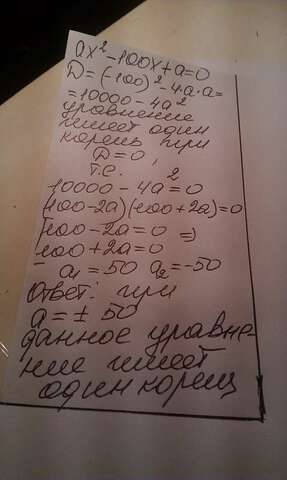 ax² - 100x + a = 0
D = (-100)² - 4a·a =
= 10000 - 4a²
уравнение
имеет один
корень при
D = 0,
т.е.
10000 - 4a² = 0
(100 - 2a)(100 + 2a) = 0
100 - 2a = 0 ⇒
100 + 2a = 0
a₁ = 50 a₂ = -50
Ответ: при
a = ± 50
данное уравне-
ние имеет
один корень